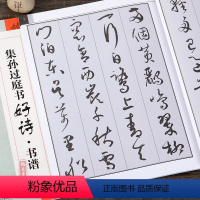 集孙过庭书好诗·书谱
两个黄鹂鸣翠柳
一行白鹭上青天
窗含西岭千秋雪
门泊东吴万里船
粉象优品 正品保障